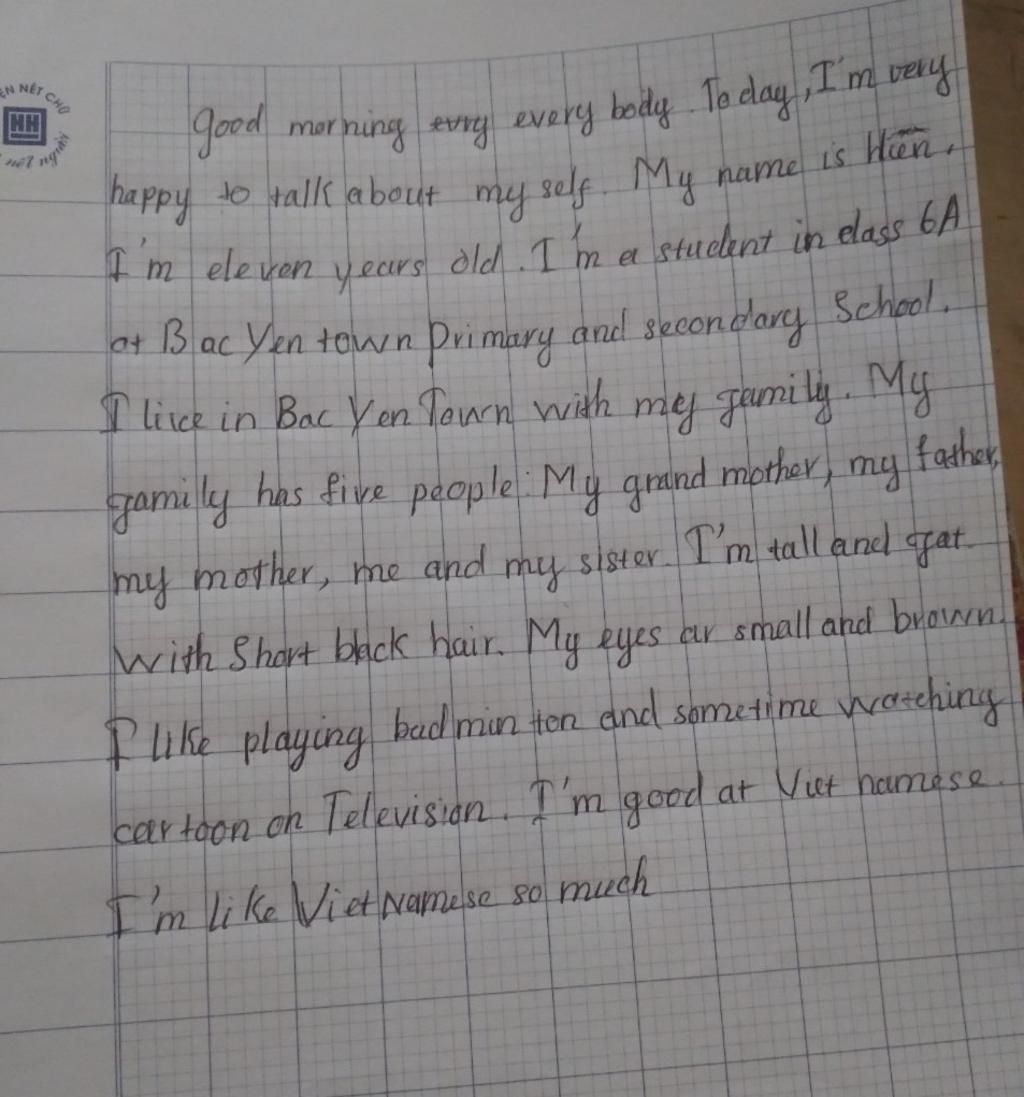 ÈN NÉT CHỮ
HH
nết người
good morning evry every body. To day, I'm very
happy to talk about my self. My name is Hiền.
I'm eleven years old. I'm a student in class 6A
at Bac Yen town Primary and secondary School.
I live in Bac Yen Town with my family. My
family has five people: My grand mother, my father,
my mother, me and my sister. I'm tall and fat
With Short black hair. My eyes ar small and brown.
I like playing badminton and sometime watching
cartoon on Television. I'm good at Viet namese.
I'm like Viet Namese so much